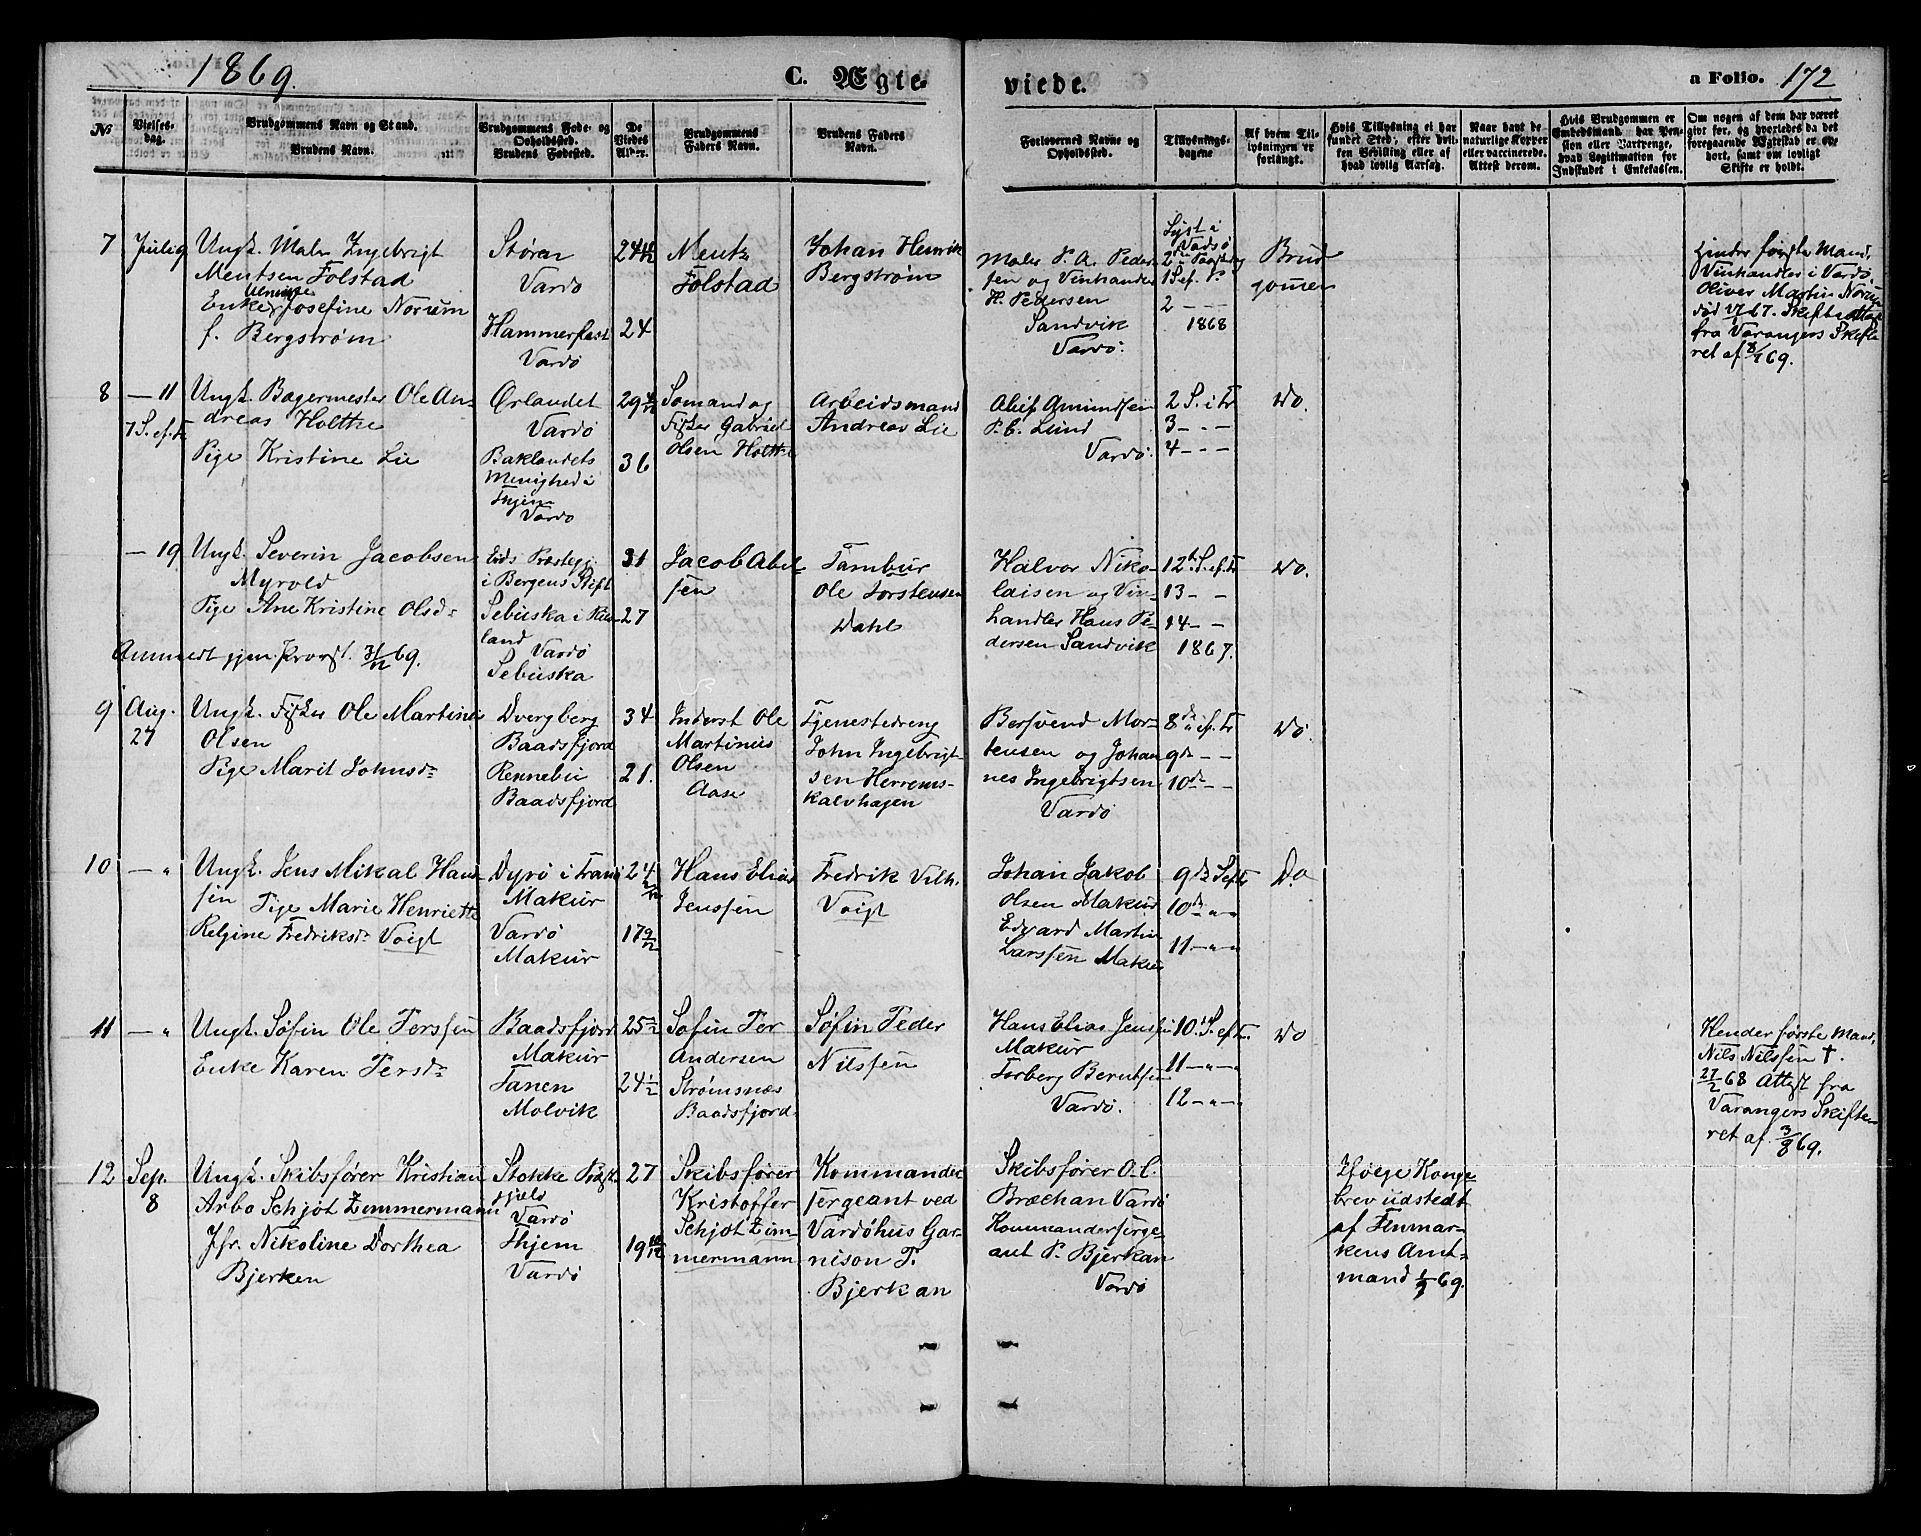 1869.
C. Ægte-
viede.
a Folio. 172
No
Vielses-
dag.
Brudgommens Navn og Stand.
Brudens Navn.
Brudgommens Føde- og
Opholdssted.
Brudens Fødested.
De
Viedes
Alder.
Brudgommens
Faders Navn.
Brudens Faders
Navn.
Forlovernes Navne og
Opholdssted.
Tillysnings-
dagene
Af hvem Til-
lysningen er
forlangt.
Hvis Tillysning ei har
fundet Sted, efter hvil-
ken Bevilling eller af
hvad lovlig Aarsag.
Naar havt de
naturlige Kopper
eller vaccinerede.
Attest derom.
Hvis Brudgommen er
Embedsmand har Pen-
sion eller Vartpenge,
hvad Legitimation for
Indskudet i Enkekassen.
Om nogen af dem har været
gift før, og hvorledes da det
foregaaende Ægteskab er op-
hørt, samt om lovligt
Skifte er holdt.
7
Juli 9
Ungk. Maler Ingebrigt
Mentsen Folstad
Enke Josefine Norum
f. Bergstrøm
Støren
Vardö
Hammerfest
Vardö
24 10/12
24
Mentz
Folstad
Johan Henrik
Bergstrøm
Maler P. A. Peder-
sen og Vinhandler
H. Pedersen
Sandvik
Vardö.
Lyst i
Vadsö
1868
Brud
gomen
Hendes første Mand,
Vinhandler i Vardö
Oliver Martin Norum
død 67. Skifteattest
fra Varangers Skifte
ret af 69.
8
— 11
7 S. ef. Tr
Ungk. Bagermester Ole An-
dreas Holthe
Pige Kristine Lie
Ørlandet
Vardö
Baklandets
Menighed i
Thjem
Vardö
29 4/12
36
Sømand og
Fisker Gabriel
Olsen Holthe
Arbeidsmand
Andreas Lie
Amundsen
P. C. Lund
Vardö.
2 S. e. Tr
3 - - -
4 - - -
Do.
— 19
Ungk. Severin Jacobsen
Myrold
Pige Ane Kristine Olsdr
Anmeldt gjen. Provst. 31/12 69.
Eids Præstegj.
i Bergens Stift
Sebuska i Rus-
land
Vardö
Sebuska
31
27
Jacob Abel-
sen
Tambur
Ole Torstensen
Dahl
Halvor Niko-
laisen og Vin-
handler Hans Pe-
dersen Sandvik
12te S. ef. Tr
13 - -
14 - -
1867.
Do.
9
Aug.
27
Ungk. Fisker Ole Martinus
Olsen
Pige Marit Johnsdr
Dverg berg
Baadsfjord
Rennebu
Baadsfjord
34
21.
Inderst Ole
Martinus
Olsen
Aase
Tjenestedreng
John Ingebrigt-
sen Herrems-
kalvhagen
Bersvend Mor-
tensen og Johan
nes Ingebrigtsen
Vardö
8de S. ef. Tr
9de - -
10de - -
Do.
10
— "
Ungk. Jens Mikal Han-
sen Pige Marie Henriette
Relgine Fredriksdr Voigt
Dyrö i Tranö
Makur
Vardö
Makur
24
17 9/12
Hans Elias
Jenssen
Fredrik Vilh.
Voigt
Johan Jakob
Olsen Makur
Edvard Martin
Larssen Makur
9de S. ef. Tr
10de - " -
11 - " -
Do
11
— "
Ungk. Søfin Ole Perssen
Enke Karen Persdr
Baadsfjord
Makur
Tanen
Molvik
25
24 1/2
Søfin Per
Andersen
Strømsnæs
Baadsfjord
Søfin Peder
Nilssen
Hans Elias Jenssen
Makur
Torberg Berntsen
Vardö.
10. S. ef. Tr.
11 - " -
12 - " -
Do
Hendes første Mand,
Nils Nilssen †.
27/2 68 Attest fra
Varangers Skifte
ret af 3/8 69.
12
Sep.
8
Ungk. Skibsfører Kristian
Arbo Schjøt Zimmermann
Jfr. Nikoline Dorthea
Bjerken
Stokke Præst.
gjeld
Vardö
Thjem
Vardö
27
19 10/12
Skibsfører
Kristoffer
Schjøt Zim-
mermann
Kommander
sergeant ved
Vardöhus Gar-
nison P.
Bjerkan
Skibsfører O. C.
Bræchan Vardö
Kommandersirge-
ant P. Bjerkan
Vardö
Ifølge Konge
brev udstedt
af Finmar-
kens Amt-
mand 1/9 69.